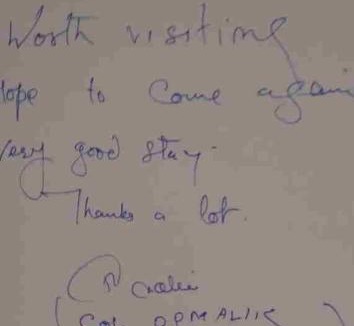 Worth visiting
Hope to come again
Very good stay.
Thanks a lot.